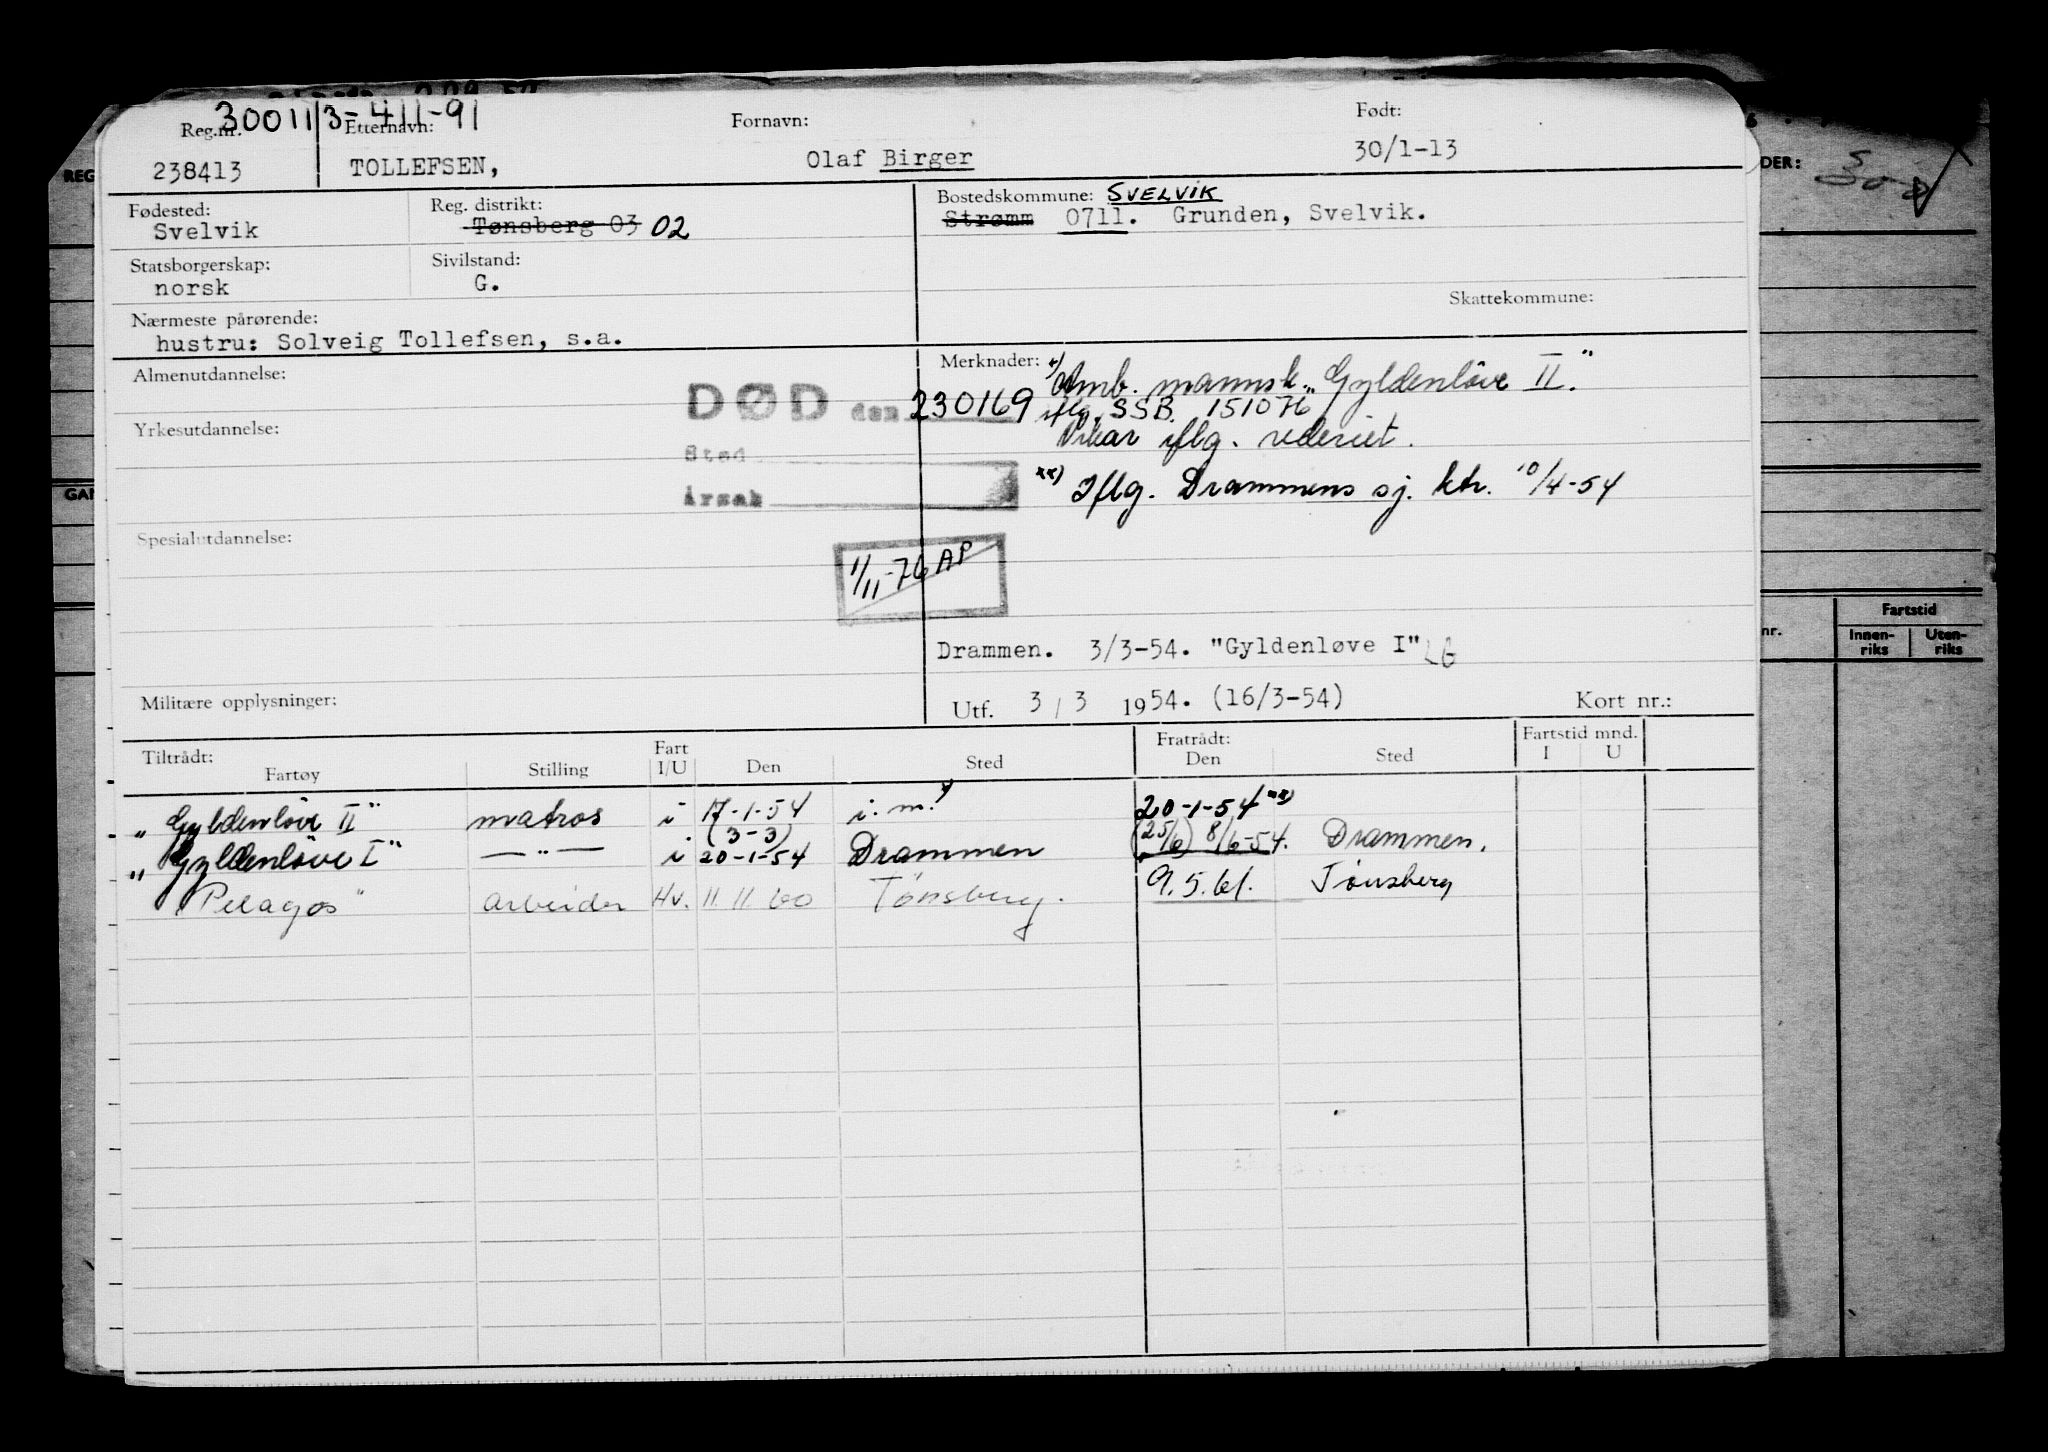 300113-411-91
Reg.nr. Etternavn: Fornavn: Født:
238413 TOLLEFSEN, Olaf Birger 30/1-13
Fødested: Reg. distrikt: Bostedskommune: SVELVIK
Svelvik Tønsberg 03 02 Strømm 0711. Grunden, Svelvik.
Statsborgerskap: Sivilstand:
norsk G.
Skattekommune:
Nærmeste pårørende:
hustru: Solveig Tollefsen, s.a.
Almenutdannelse: Merknader: x) Omb. mannsk. "Gyldenløve II."
DØD den 230169 iflg. SSB. 151076
Yrkesutdannelse: Vikar iflg. rederiet.
Sted
Årsak xx) Iflg. Drammens sj. ktr. 10/4-54
Spesialutdannelse:
1/11-76 AP
Drammen. 3/3-54. "Gyldenløve I" LG
Militære opplysninger: Utf. 3 / 3 1954. (16/3-54) Kort nr.:
Tiltrådt: Fart Fratrådt: Fartstid mnd.
Fartøy Stilling I/U Den Sted Den Sted I U
"Gyldenløve II" matros i 17-1-54 i. m. x) 20-1-54 xx)
(3-3) (25/6) 8/6-54. Drammen.
"Gyldenløve I" —"— i 20-1-54 Drammen
"Pelagos" arbeider Hv. 11.11 60 Tønsberg. 9.5.61. Tønsberg
REG
GAN
DER:
nr.
Fartstid
Innen-riks Uten-riks